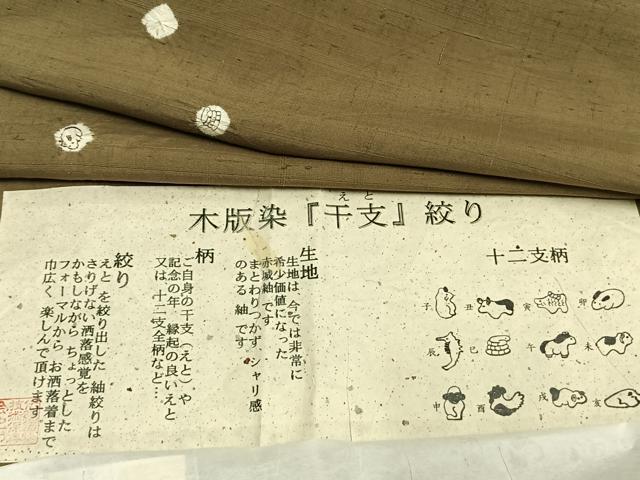 えと
木版染『干支』絞り
生地
生地は 今では非常に
希少価値になった
赤城紬です
まとわりつかず シャリ感
のある 紬 です
柄
ご自身の干支(えと)や
記念の年 縁起の良いえと
又は 十二支全柄など…
絞り
えと を絞り出した 紬絞りは
さりげない洒落感覚を
かもしながらちょっとした
フォーマルから お洒落着まで
巾広く 楽しんで頂けます
十二支柄
子 丑 寅 卯
辰 巳 午 未
申 酉 戌 亥